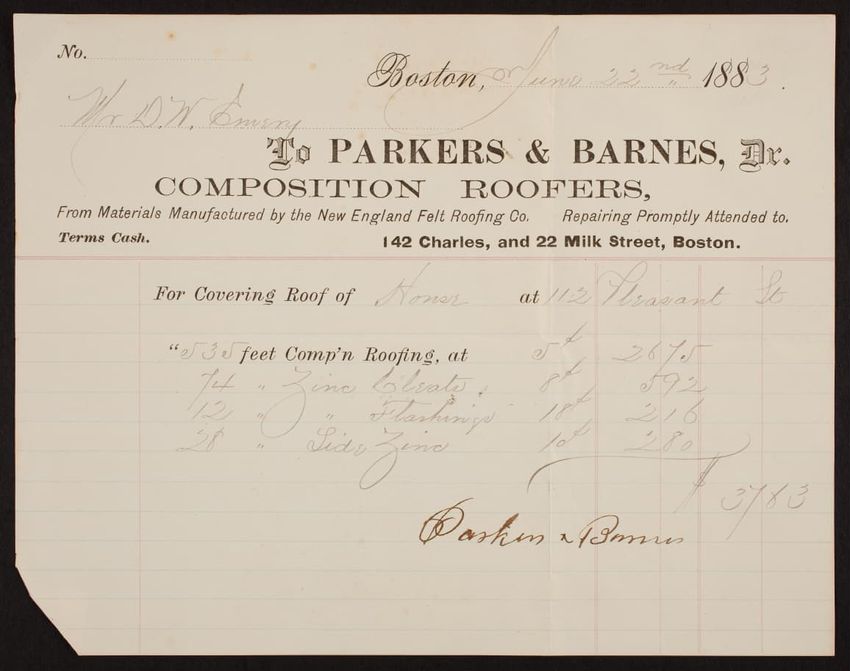 No.
Boston, June 22nd 1883.
Mr D. W. Emery
To PARKERS & BARNES, Dr.
COMPOSITION ROOFERS,
From Materials Manufactured by the New England Felt Roofing Co. Repairing Promptly Attended to.
Terms Cash. 142 Charles, and 22 Milk Street, Boston.
For Covering Roof of House at 112 Pleasant St
“ 535 feet Comp'n Roofing, at 5¢ 2675
74 " Zinc Cleats 8¢ 592
12 " " Flashings 18¢ 216
28 " Side Zinc 10¢ 280
$ 3763
Parkers & Barnes